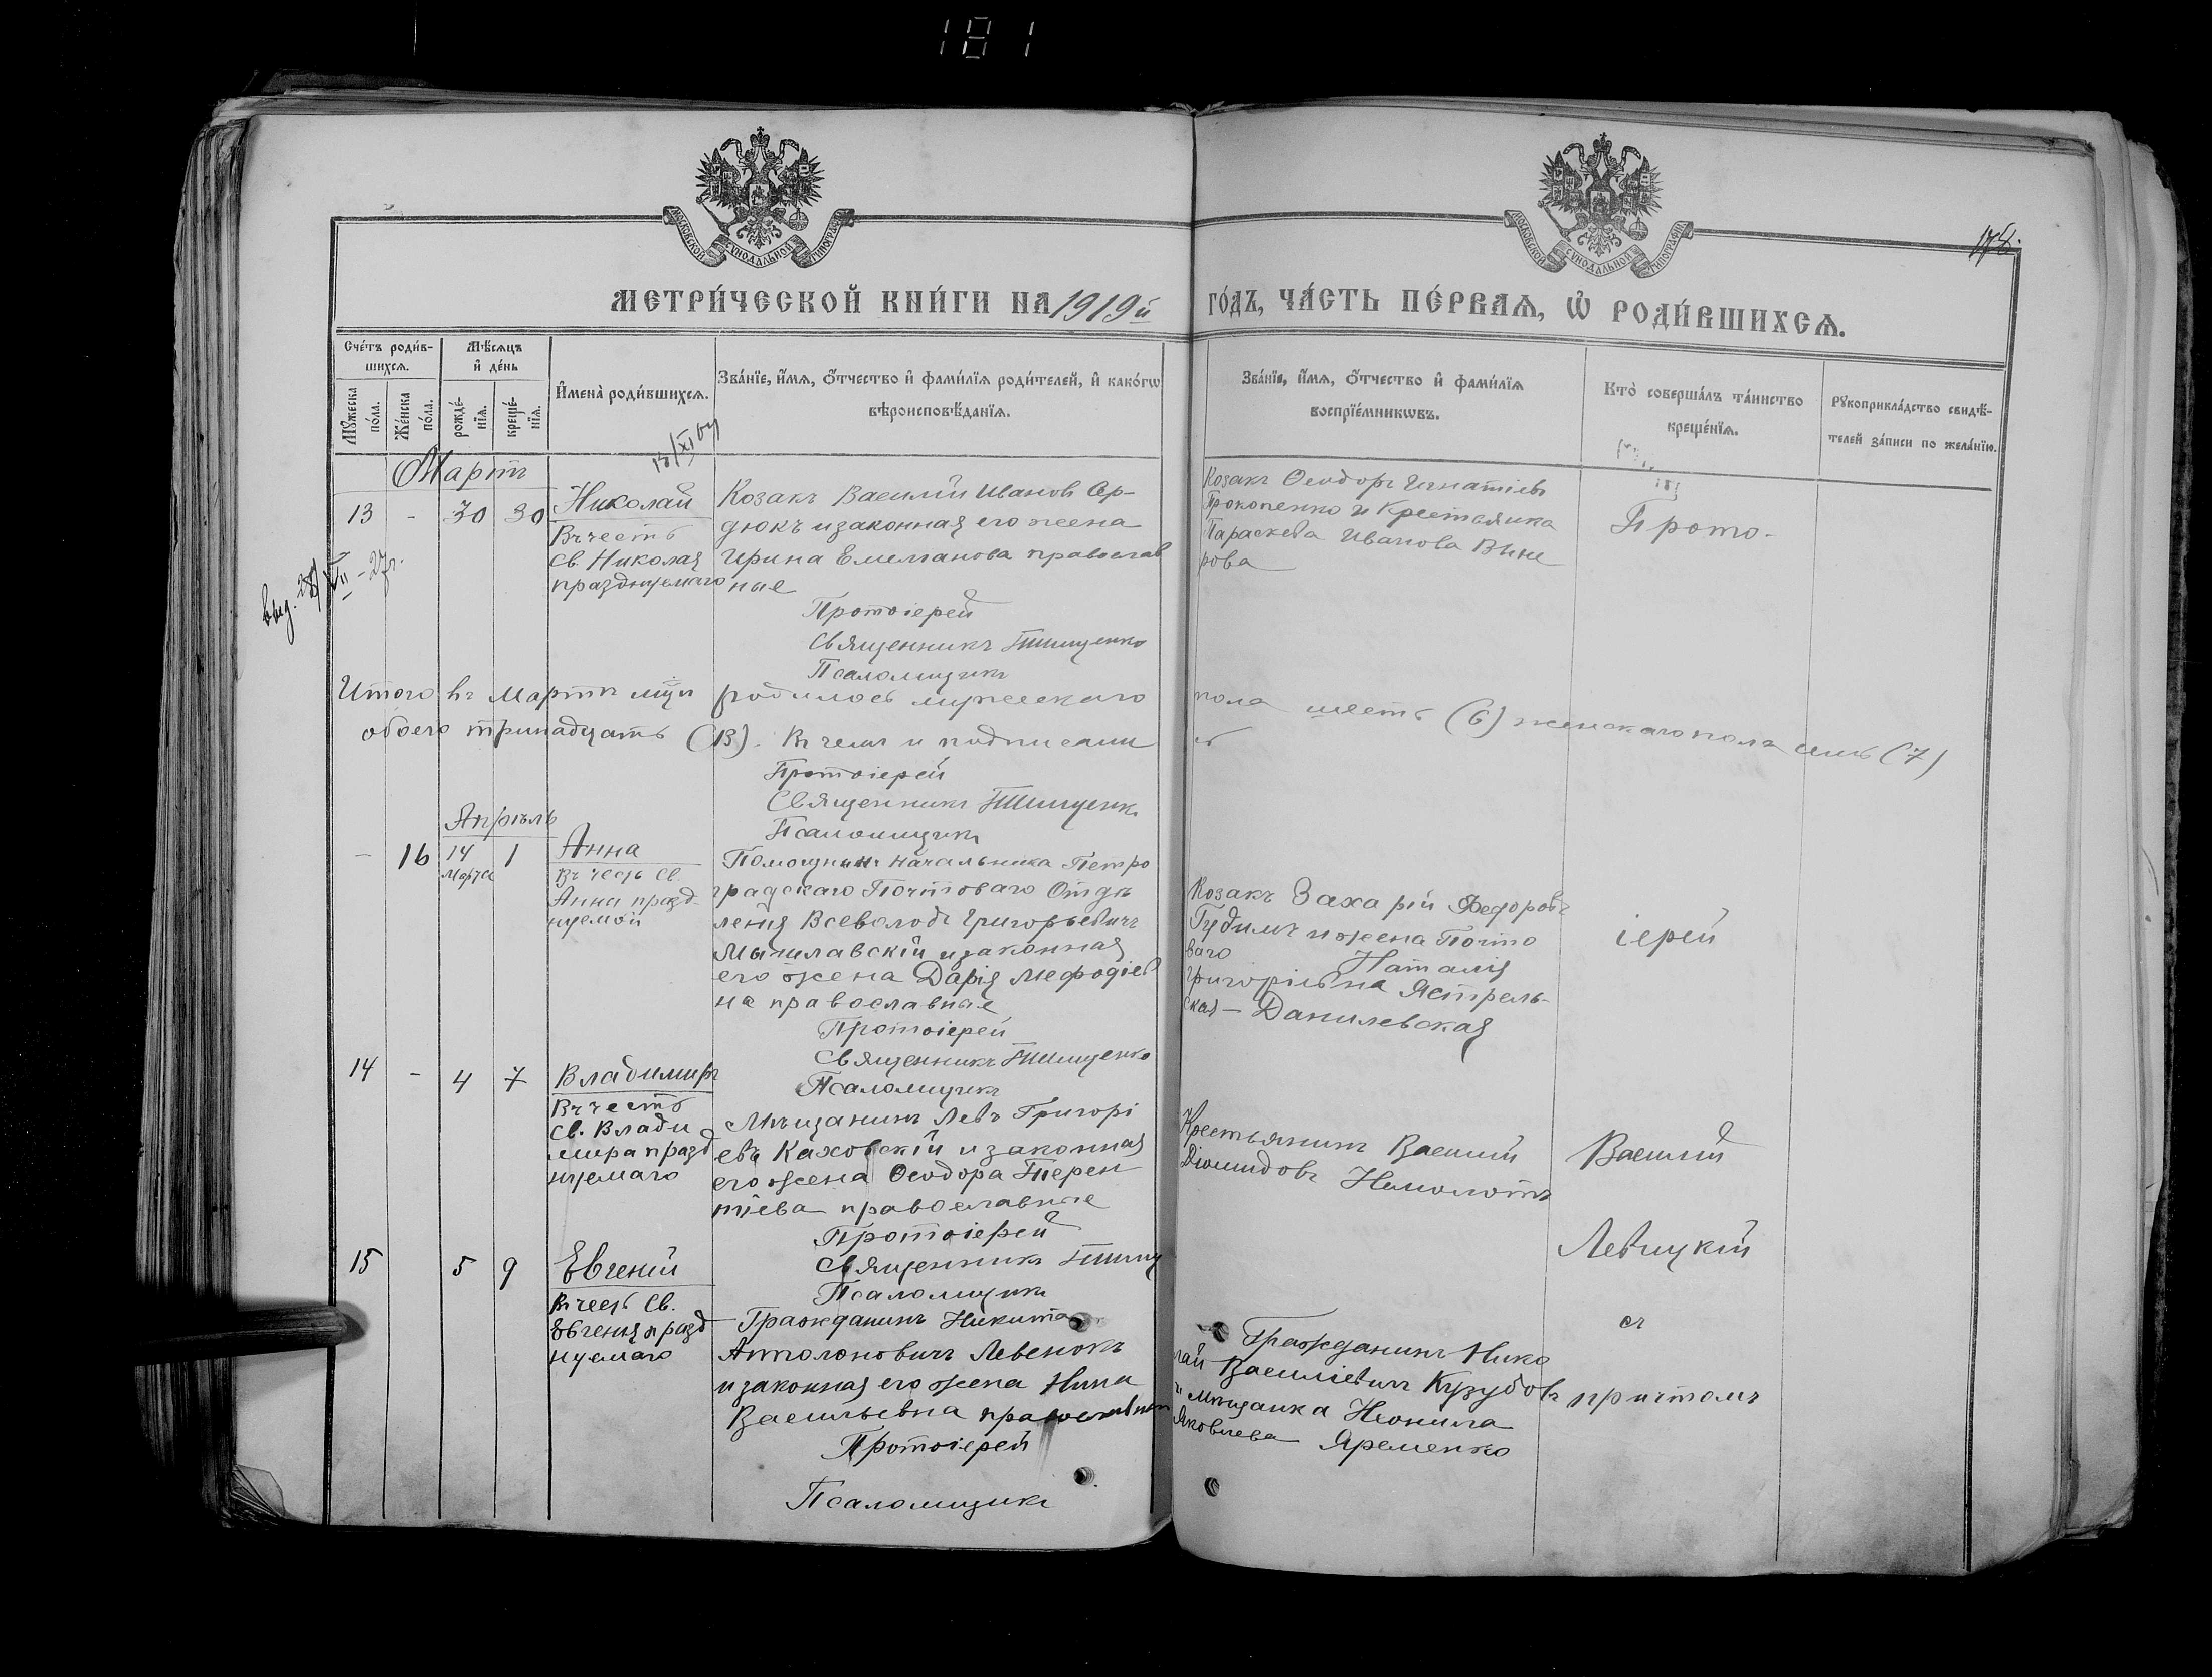 181
МОСКОВСКОЙ СѴНОДАЛЬНОЙ ТИПОГРАФІИ
МОСКОВСКОЙ СѴНОДАЛЬНОЙ ТИПОГРАФІИ
МЕТРИ́ЧЕСКОЙ КНИ́ГИ НА 1919й ГО́ДЪ, ЧА́СТЬ ПЕ́РВАѦ, Ѡ РОДИ́ВШИХСѦ.
Сче́тъ роди́в-
шихсѧ.
Мꙋжеска по́ла.
Же́нска по́ла.
Мѣ́сѧцъ и де́нь
рожде́-нїѧ.
креще́-нїѧ.
И҆мена̀ роди́вшихсѧ.
Зва́нїе, и҆́мѧ, ѻ҆́тчество и҆ фами́лїѧ роди́телей, и҆ како́гѡ
вѣроисповѣ́данїѧ.
Зва́нїе, и҆́мѧ, ѻ҆́тчество и҆ фами́лїѧ
воспрїе́мникѡвъ.
Кто̀ соверша́лъ та́инство
креще́нїѧ.
Рꙋкоприкла́дство свидѣ́-
телей за́писи по жела́нїю.
Мартъ
13 - 30 30 Николай
Въ честь
св. Николая
празднуемаго
Козакъ Василий Иванов Сер-
дюкъ и законная его жена
Ирина Емелianова православ
ные
Протоіерей
Священникъ Тимщенко
Псаломщикъ
Козакъ Ѳеодоръ Игнатіевъ
Прокопенко и Крестьянка
Параскева Иванова Вине
рова
Прото-
Итого въ Мартѣ мцѣ родилось мужескаго пола шесть (6) женскаго пола семь (7)
обоего тринадцать (13). Въ чемъ и подписались
Протоіерей
Священникъ Тимщенк
Псаломщикъ
Апрѣль
- 16 14 1 Анна
Марта
Въ честь св.
Анны празд-
нуемой
Помощникъ начальника Петро
градскаго Почтоваго Отдѣ
ленія Всеволодъ Григорьевичъ
и законная
его жена Дарія Мефодіев
на православные
Протоіерей
Священникъ Тимщенко
Псаломщикъ
Козакъ Захарій Федоровъ
Гудимъ и жена Почто
ваго Наталія
Григоріевна Ястрель-
ская - Данилевская
іерей
14 - 4 7 Владимиръ
Въ честь
св. Влади
мира празд
нуемаго
Мѣщанинъ Левъ Григорі
евъ Каховскій и законная
его жена Ѳеодора Терен
тіева православные
Протоіерей
Священникъ Тимщ
Псаломщикъ
Крестьянинъ Василій
Діомидовъ Немолотъ
Василій
Левицкій
15 5 9 Евгеній
Въ честь св.
Евгенія празд
нуемаго
Гражданинъ Никита
Антолоновичъ Левенокъ
и законная его жена Нина
Васильевна православные
Протоіерей
Псаломщикъ
Гражданинъ Нико
лай Василіевичъ Кузубовъ
и мѣщанка Неонила
Яковлева Яременко
съ
причтомъ